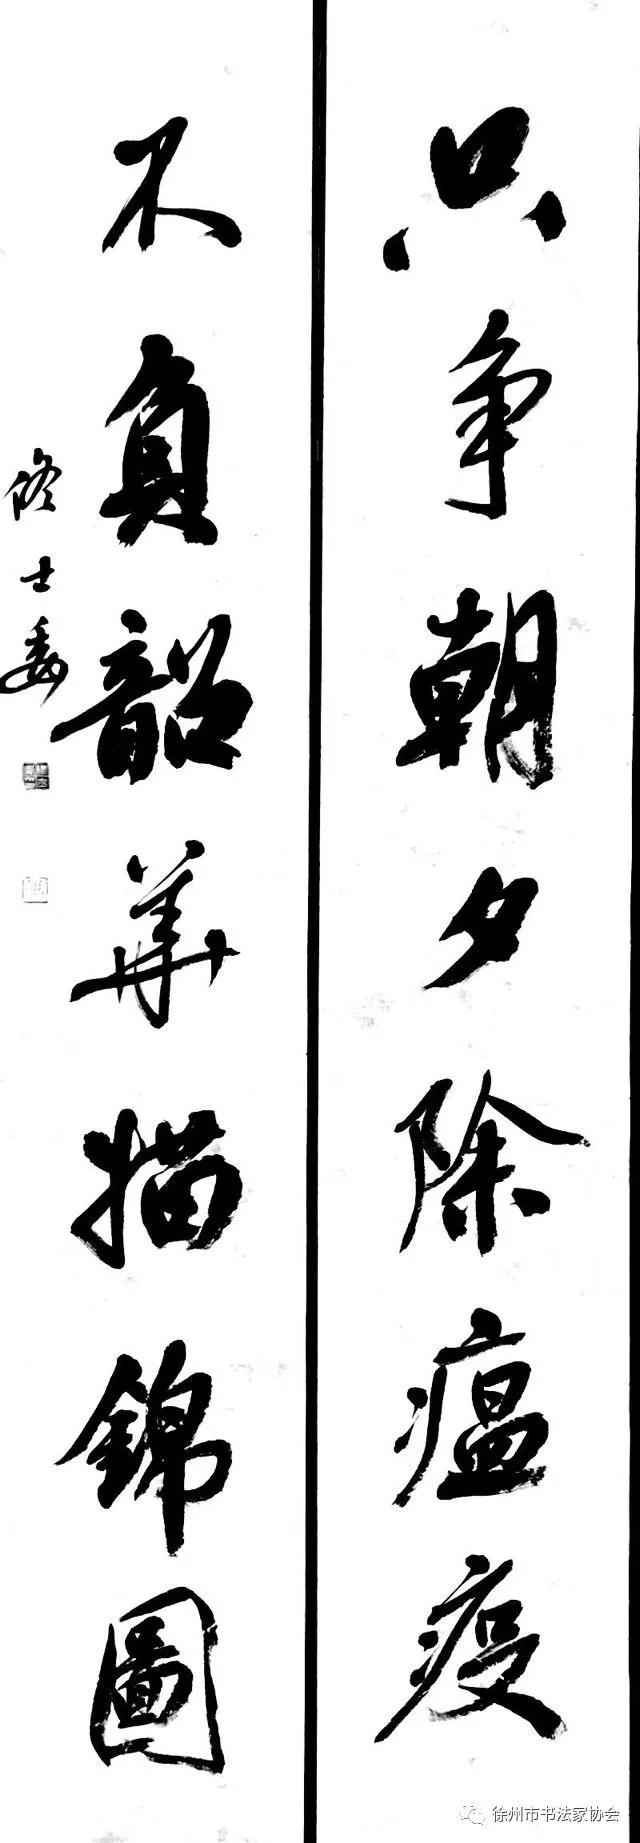 只争朝夕除瘟疫
不負韶華描錦圖
修士委
徐州市书法家协会